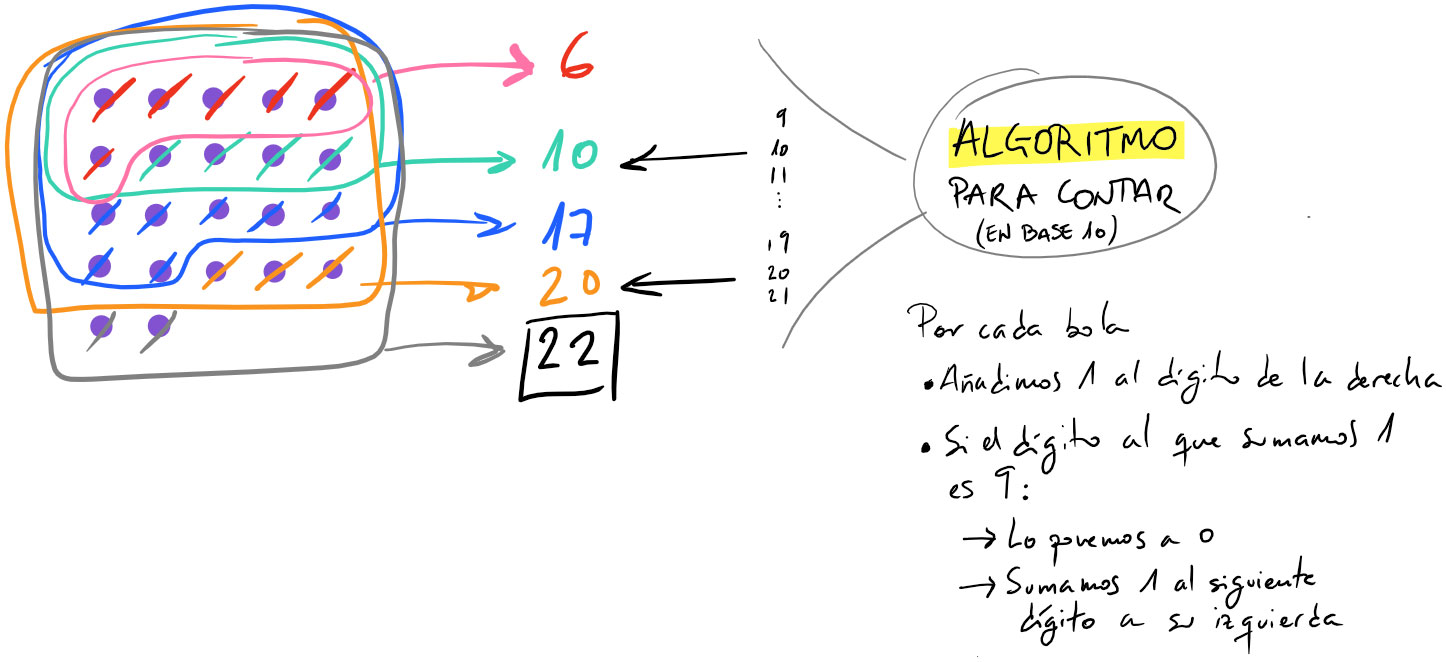 6
10
17
20
22
9
10
11
...
19
20
21
ALGORITMO
PARA CONTAR
(EN BASE 10)
Por cada bola
• Añadimos 1 al dígito de la derecha
• Si el dígito al que sumamos 1
es 9:
→ Lo ponemos a 0
→ Sumamos 1 al siguiente
dígito a su izquierda